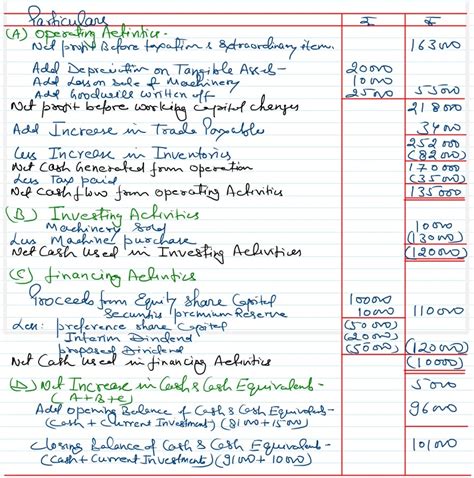 Particulars ₹ ₹
(A) Operating Activities -
Net profit Before taxation & Extraordinary item. 163000
Add Depreciation on Tangible Assets - 20000
Add Loss on sale of Machinery 10000
Add Goodwill written off 25000 55000
Net profit before working capital changes 218000
Add Increase in Trade Payable 34000
252000
Less Increase in Inventories (82000)
Net Cash Generated from operation 170000
Less Tax paid (35000)
Net Cash flow from operating Activities 135000
(B) Investing Activities
Machinery Sold 10000
Less Machine purchase (130000)
Net Cash used in Investing Activities (120000)
(C) Financing Activities
Proceeds from Equity Share Capital 100000
Securities premium Reserve 10000 110000
Less: preference share Capital (50000)
Interim Dividend (20000)
proposed Dividend (50000) (120000)
Net Cash used in financing Activities (10000)
(D) Net Increase in Cash & Cash Equivalent - 5000
(A+B+C)
Add opening Balance of Cash & Cash Equivalent - 96000
(Cash + Current Investment) (81000 + 15000)
Closing Balance of Cash & Cash Equivalent - 101000
(Cash + Current Investments) (91000 + 10000)